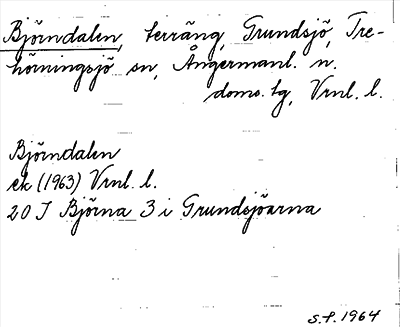 Björndalen, terräng, Grundsjö, Tre-
hörningsjö sn, Ångermanl. n.
doms. lg, Vrnl. l.
Björndalen
ek (1963) Vrnl. l.
20 J Björna 3 i Grundsjöarna
S.F. 1964